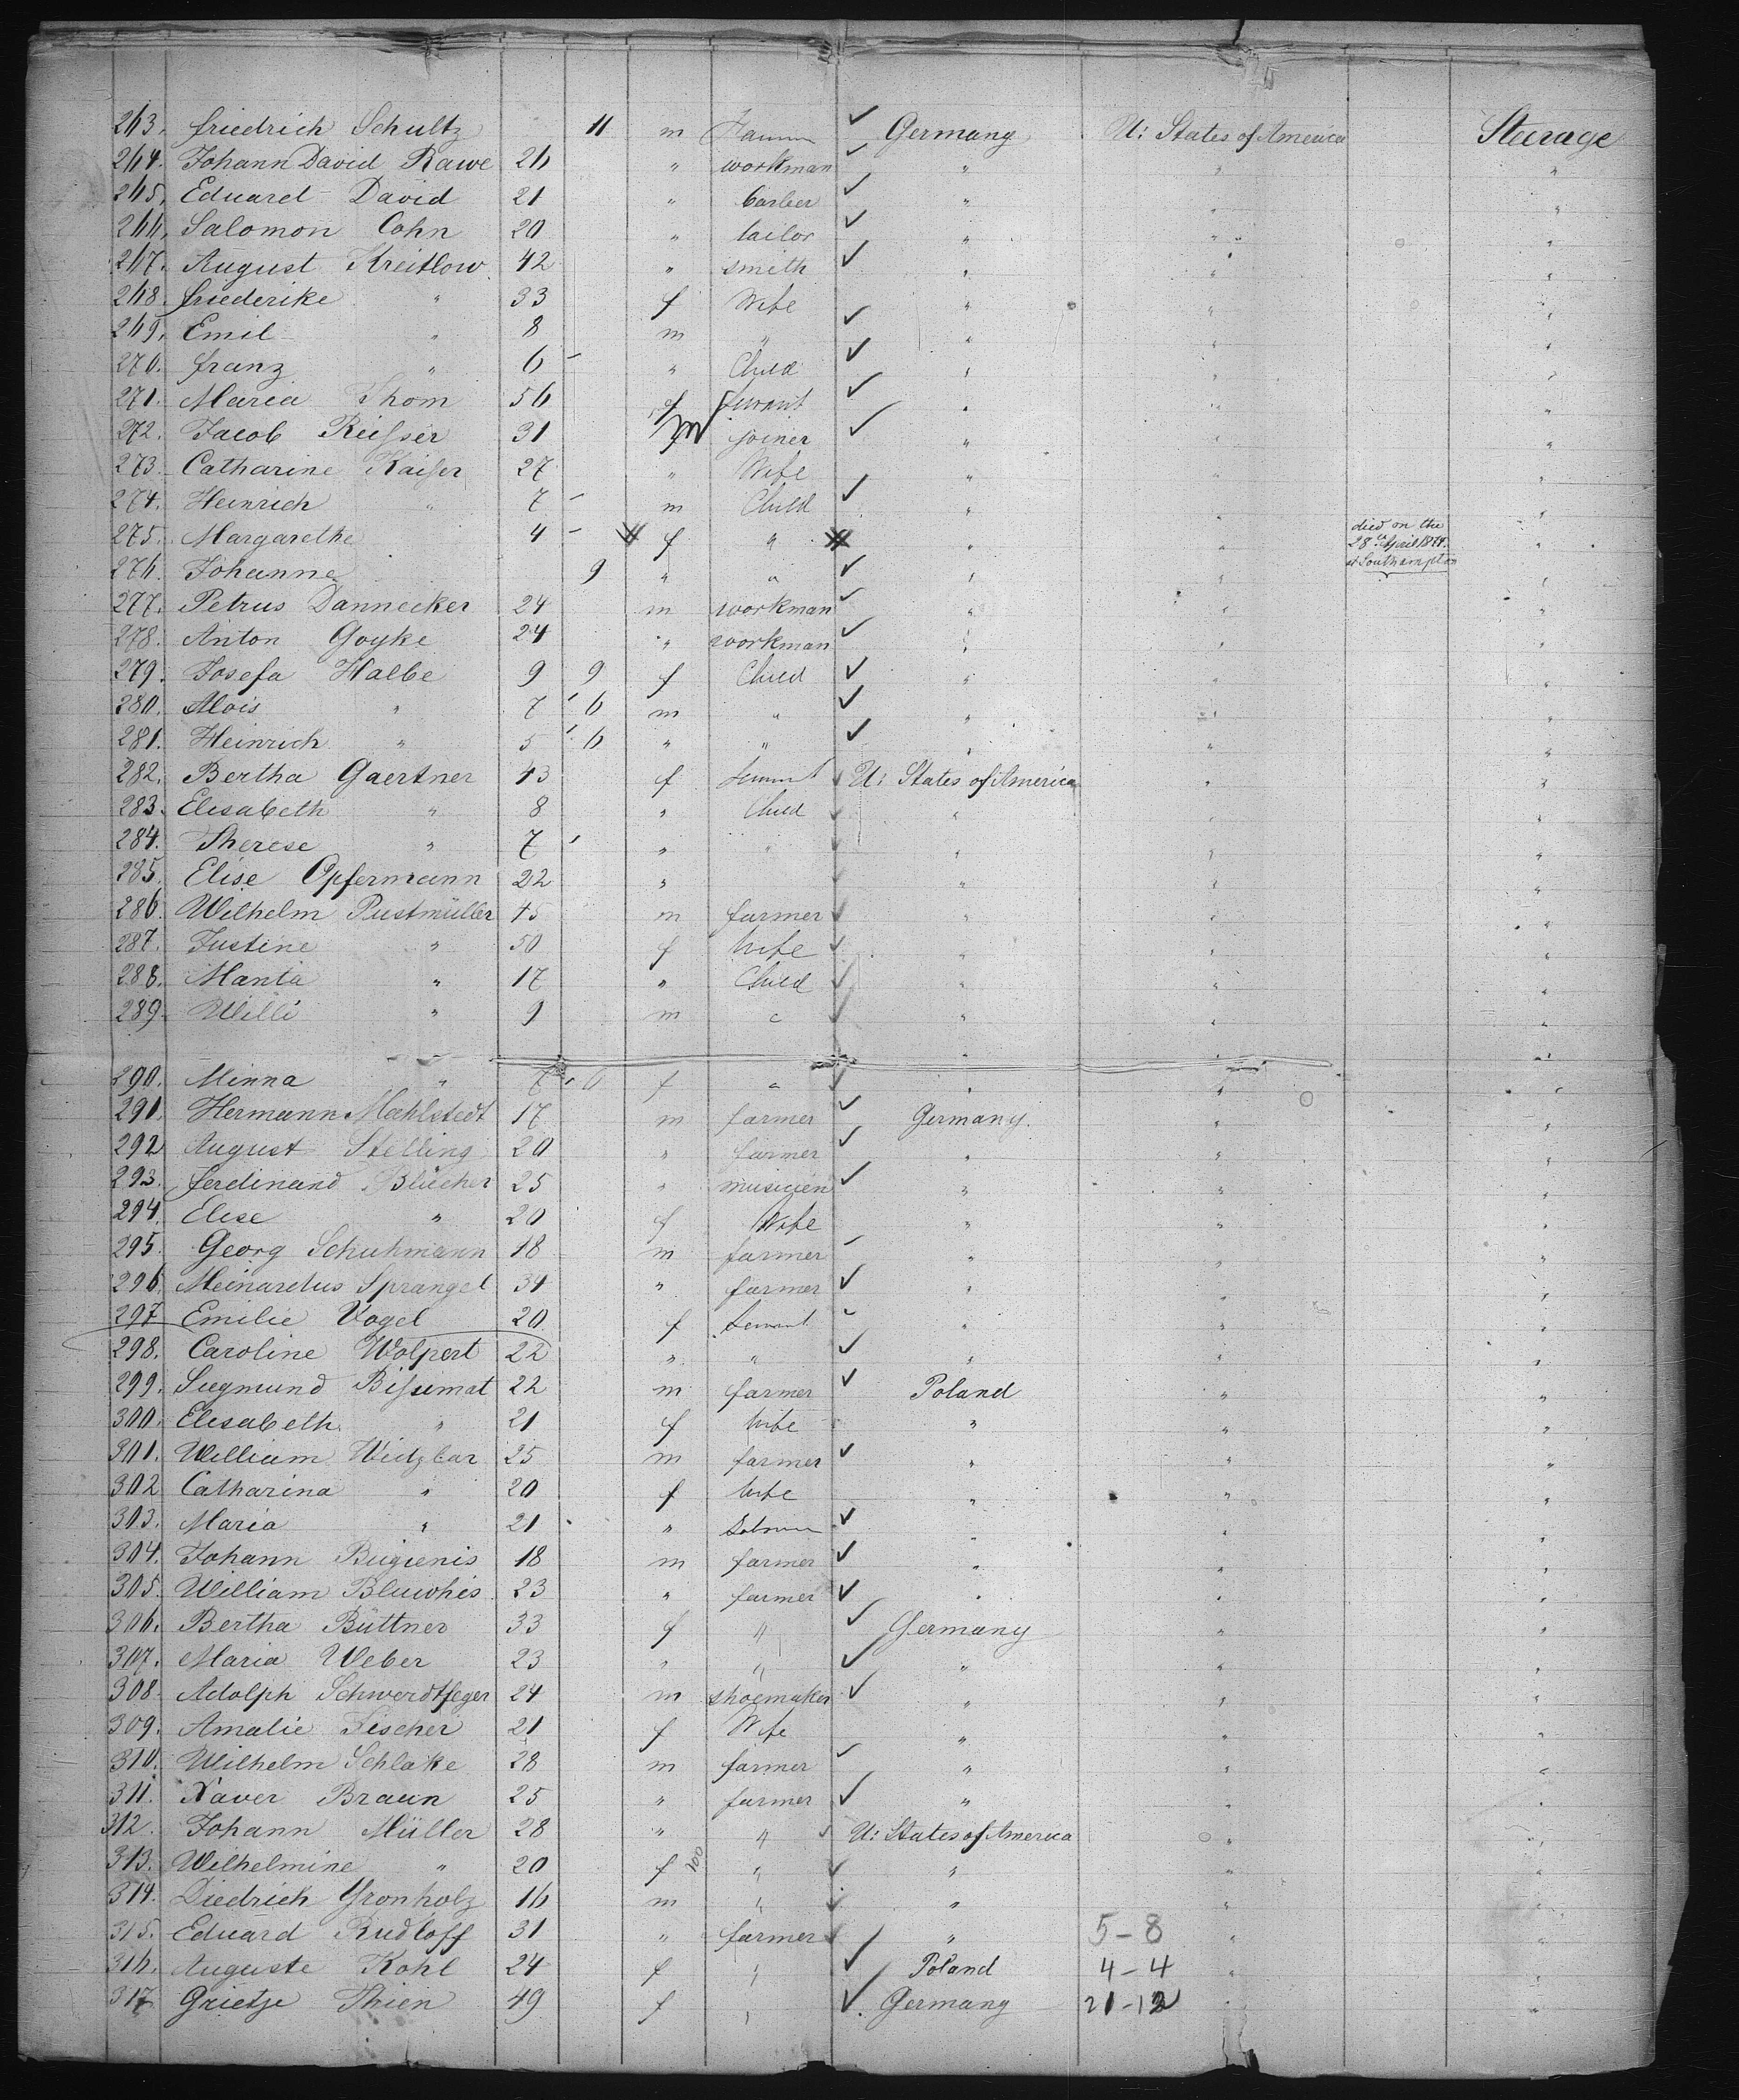 263. Friedrich Schultz 11 m Germany U: States of America Steerage
264. Johann David Rawe 26 " workman " " "
265. Eduard David 21 " barber " " "
266. Salomon Cohn 20 " tailor " " "
267. August Kreitlow 42 " smith " " "
268. Friederike " 33 f Wife " " "
269. Emil " 8 m " " " "
270. Franz " 6 " Child " " "
271. Maria Thom 56 f Servant " " "
272. Jacob Reisser 31 m joiner " " "
273. Catharine Kaiser 27 " Wife " " "
274. Heinrich " 7 m Child " " "
275. Margarethe 4 f " " " died on the 28th April 1874. at Southampton "
276. Johanne 9 " " " " "
277. Petrus Dannecker 24 m workman " " "
278. Anton Goyke 24 " workman " " "
279. Josefa Halbe 9 9 f Child " " "
280. Alois " 7 6 m " " " "
281. Heinrich " 5 6 " " " " "
282. Bertha Gaertner 43 f Servant U: States of America " "
283. Elisabeth " 8 " Child " " "
284. Therese " 7 " " " " "
285. Elise Opfermann 22 " " " "
286. Wilhelm Pustmüller 45 m farmer " " "
287. Justine " 50 f Wife " " "
288. Manta " 17 " Child " " "
289. Willi " 9 m " " " "
290. Minna " 7 6 f " " " "
291. Hermann Mahlstedt 17 m farmer Germany. " "
292 August Stelling 20 " farmer " " "
293. Ferdinand Blücher 25 " musicien " " "
294. Elise " 20 f Wife " " "
295. Georg Schuhmann 18 m farmer " " "
296. Meinardus Sprangel 34 " farmer " " "
297 Emilie Vogel 20 f Servant " " "
298. Caroline Wolpert 22 " " " " "
299. Siegmund Bissumat 22 m farmer Poland " "
300. Elisabeth " 21 f Wife " " "
301. William Widzbar 25 m farmer " " "
302 Catharina " 20 f Wife " " "
303. Maria " 21 " " " "
304. Johann Bugienis 18 m farmer " " "
305. William Bluwhis 23 " farmer " " "
306. Bertha Büttner 33 f " Germany " "
307. Maria Weber 23 " " " " "
308. Adolph Schwerdtfeger 24 m shoemaker " " "
309. Amalie Fischer 21 f Wife " " "
310. Wilhelm Schlake 28 m farmer " " "
311. Xaver Braun 25 " farmer " " "
312. Johann Müller 28 " " U: States of America " "
313. Wilhelmine " 20 f " " " "
314. Diedrich Gronholz 16 m " " " "
315. Eduard Rudloff 31 " farmer " 5-8 " "
316. Auguste Kohl 24 f " Poland 4-4 " "
317 Grietje Thien 49 f " Germany 21-12 " "